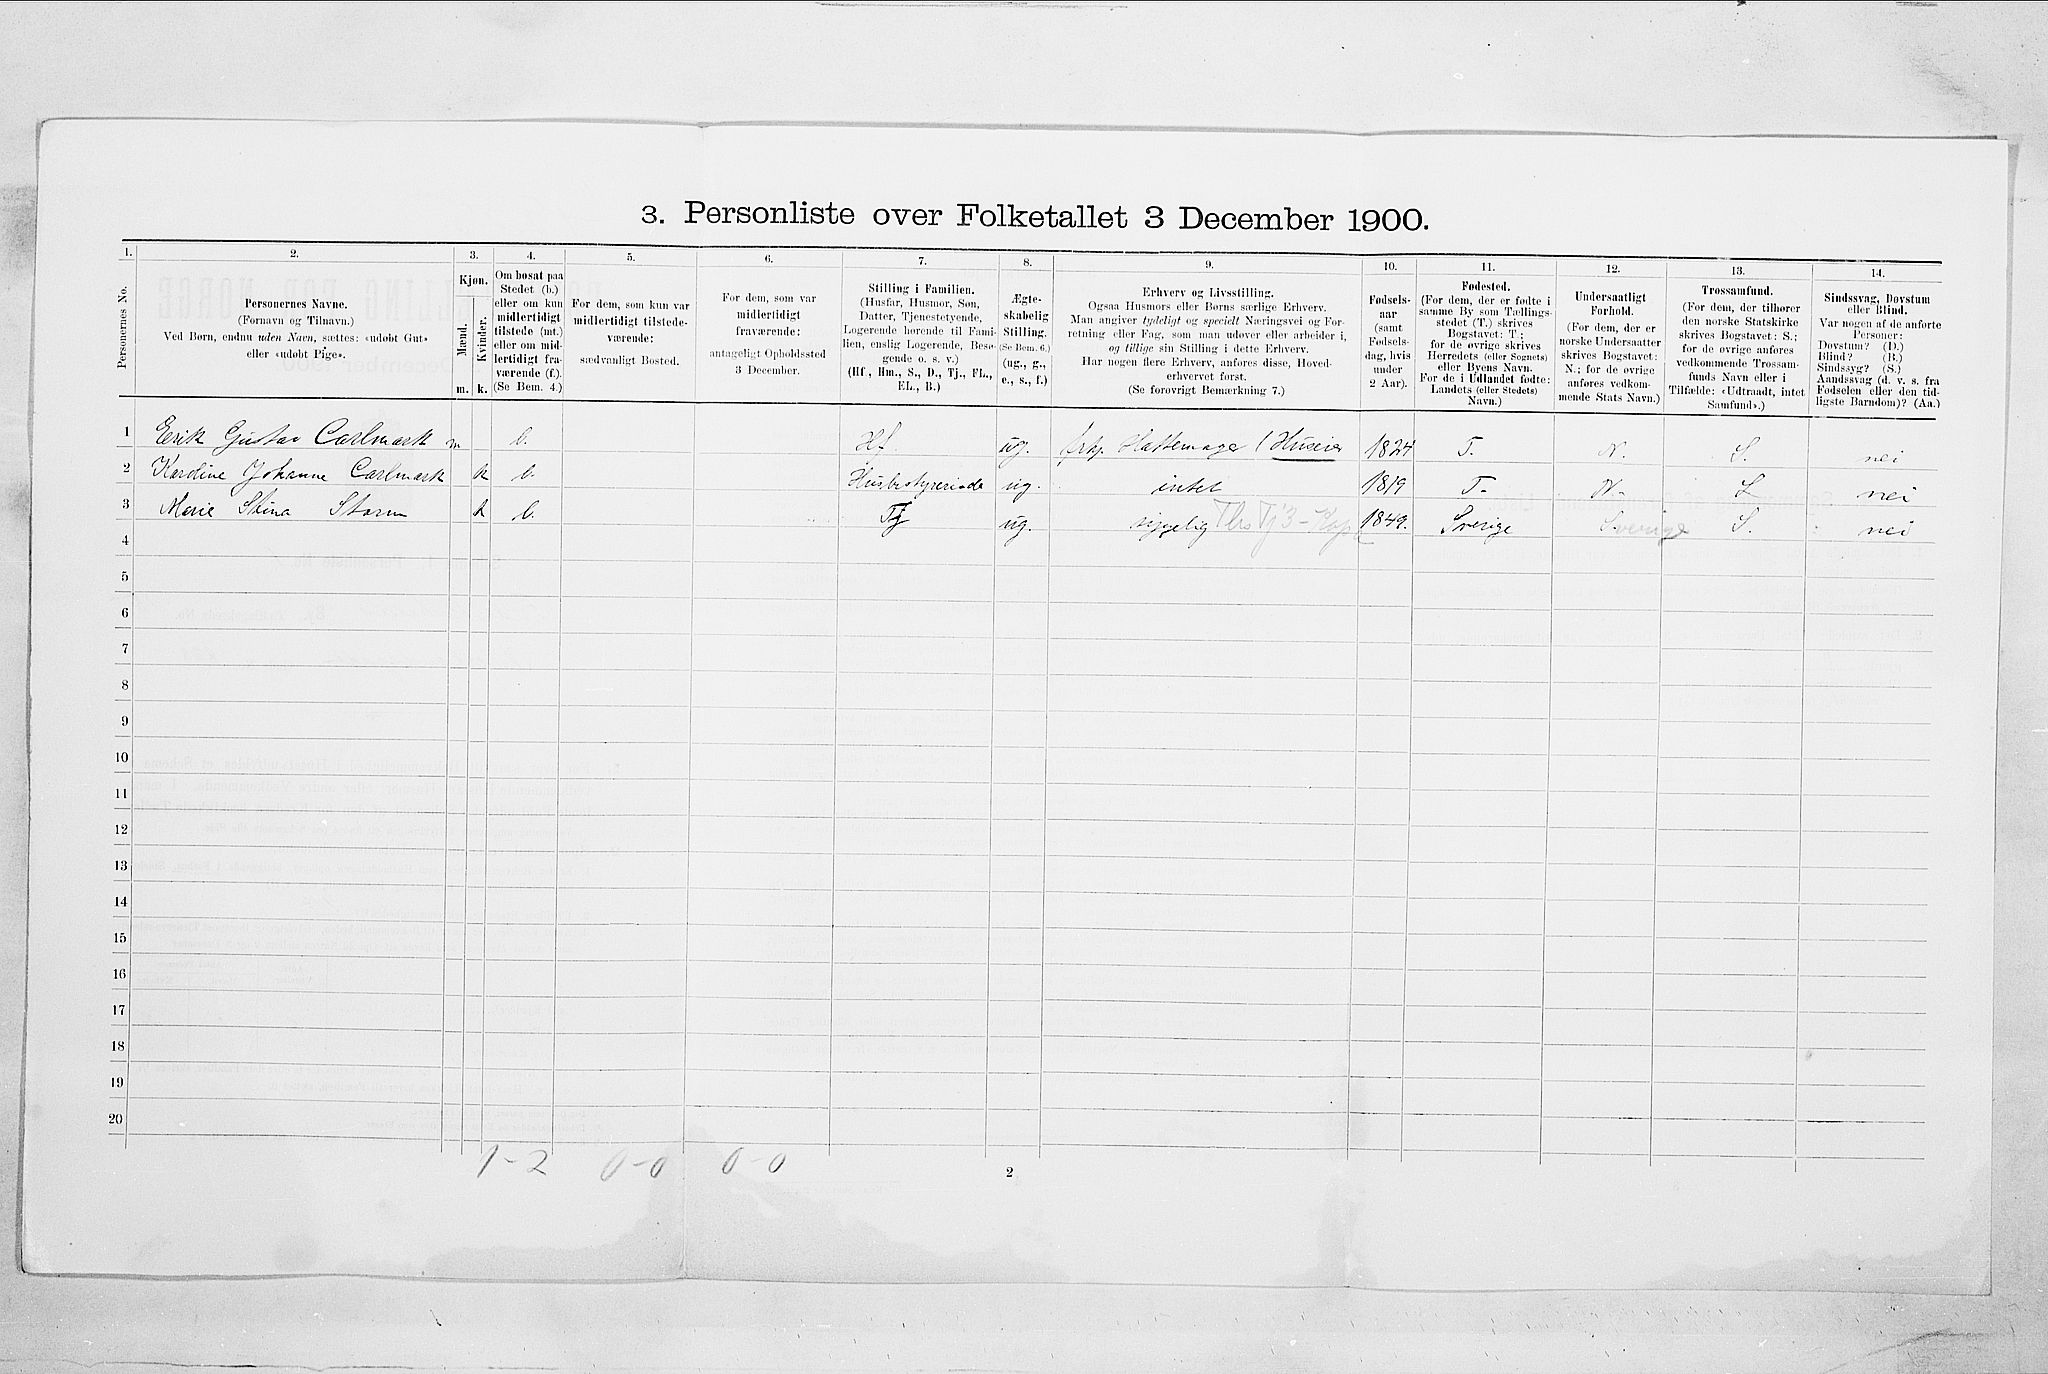 3. Personliste over Folketallet 3 December 1900.
1. 2. 3. 4. 5. 6. 7. 8. 9. 10. 11. 12. 13. 14.
Personernes No.
Personernes Navne.
(Fornavn og Tilnavn.)
Ved Børn, endnu uden Navn, sættes: «udøbt Gut»
eller «udøbt Pige».
Kjøn.
Mænd.
Kvinder.
m. k.
Om bosat paa
Stedet (b.)
eller om kun
midlertidigt
tilstede (mt.)
eller om mid-
lertidigt fra-
værende (f.)
(Se Bem. 4.)
For dem, som kun var
midlertidigt tilstede-
værende:
sædvanligt Bosted.
For dem, som var
midlertidigt
fraværende:
antageligt Opholdssted
3 December.
Stilling i Familien.
(Husfar, Husmor, Søn,
Datter, Tjenestetyende,
Logerende hørende til Fami-
lien, enslig Logerende, Besø-
gende o. s. v.)
(Hf., Hm., S., D., Tj., FL.,
EL., B.)
Ægte-
skabelig
Stilling.
(Se Bem. 6.)
(ug., g.,
e., s., f.)
Erhverv og Livsstilling.
Ogsaa Husmors eller Børns særlige Erhverv.
Man angiver tydeligt og specielt Næringsvei og For-
retning eller Fag, som man udøver eller arbeider i,
og tillige sin Stilling i dette Erhverv.
Har nogen flere Erhverv, anføres disse, Hoved-
erhvervet først.
(Se forøvrigt Bemærkning 7.)
Fødsels-
aar
(samt
Fødsels-
dag, hvis
under
2 Aar).
Fødested.
(For dem, der er fødte i
samme By som Tællings-
stedet (T.) skrives
Bogstavet: T;
for de øvrige skrives
Herredets (eller Sognets)
eller Byens Navn.
For de i Udlandet fødte:
Landets (eller Stedets)
Navn.)
Undersaatligt
Forhold.
(For dem, der er
norske Undersaatter
skrives Bogstavet:
N.; for de øvrige
anføres vedkom-
mende Stats Navn.)
Trossamfund.
(For dem, der tilhører
den norske Statskirke
skrives Bogstavet: S.;
for de øvrige anføres
vedkommende Trossam-
funds Navn eller i
Tilfælde: «Udtraadt, intet
Samfund».)
Sindssvag, Døvstum
eller Blind.
Var nogen af de anførte
Personer:
Døvstum? (D.)
Blind? (B.)
Sindssyg? (S.)
Aandssvag (d. v. s. fra
Fødselen eller den tid-
ligste Barndom)? (Aa.)
1 Erik Gustav Carlmark m b. Hf. ug. Hattemager (Huseier 1824 T. N. S. nei
2 Karoline Johanne Carlmark k b. Husbestyrerinde ug. intet 1819 T. N. S nei
3 Marie Stina Storm k b. Tj ug. sygelig 1849. Sverige Sverige S. nei
4
5
6
7
8
9
10
11
12
13
14
15
16
17
18
19
20
1-2 0-0 0-0
2